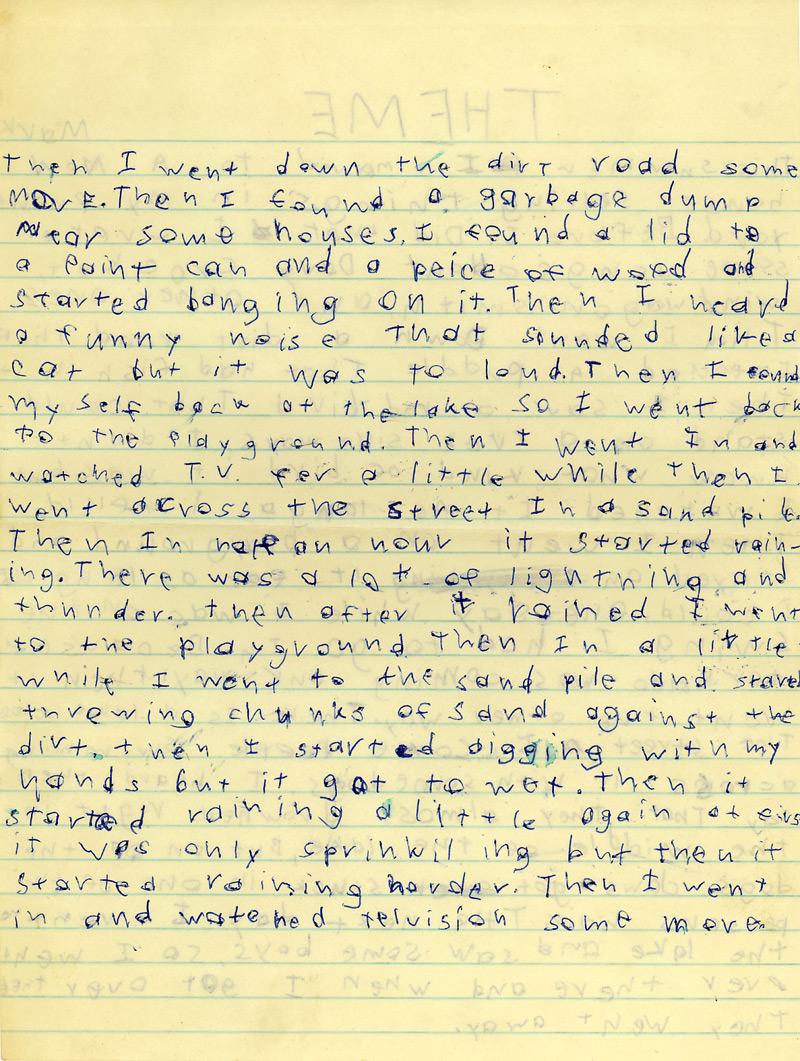 THEME
Mark
Then I went down the dirt road some
more. Then I found a garbage dump
near some houses. I found a lid to
a paint can and a peice of wood and
started banging on it. Then I heard
a funny noise that sounded like a
cat but it was to loud. Then I found
my self back at the lake so I went back
to the playground. Then I went In and
watched T.V. for a little while then I
went across the street In a sand pile.
Then In half an hour it started rain-
ing. There was a lot of lightning and
thunder. then after it rained I went
to the playground. Then In a little
while I went to the sand pile and started
threwing chunks of sand against the
dirt. then I started digging with my
hands but it got to wet. Then it
started raining a little again at firs
it was only sprinkil ing but then it
started raining harder. Then I went
in and watched telvision some more.
the lake and saw some boys, so I went
over there and when I got over there
they went away.